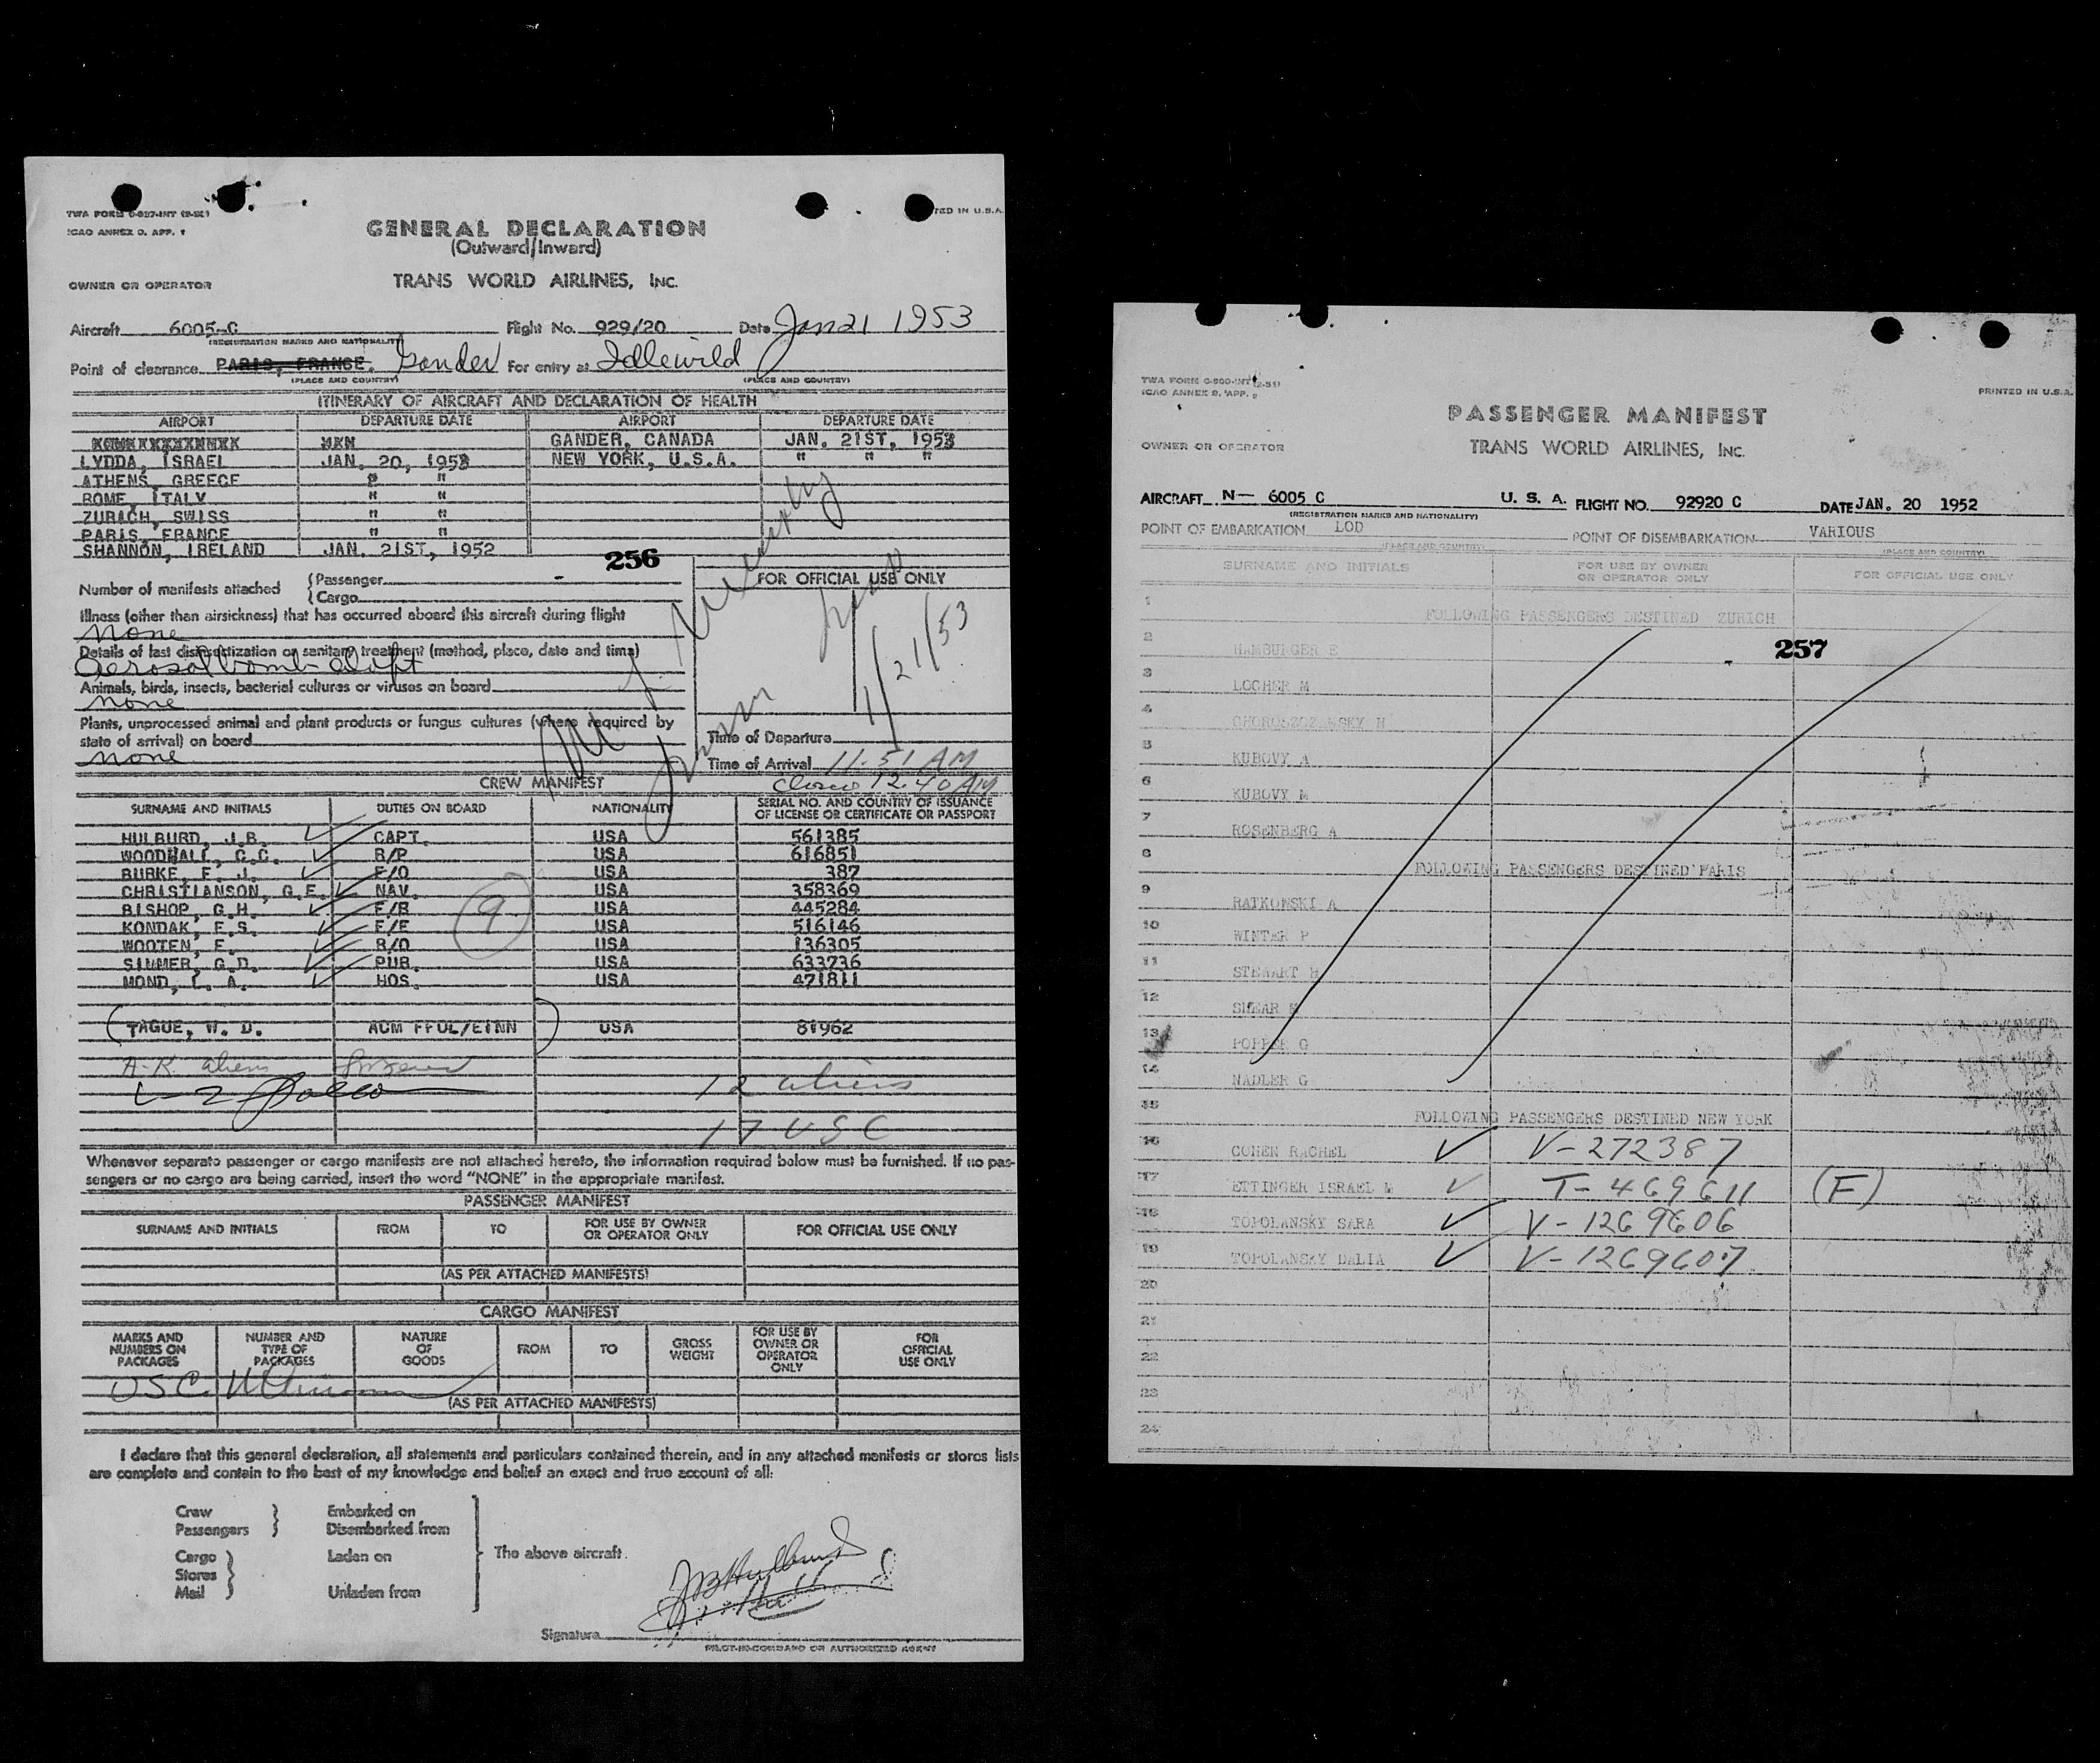 TWA FORM
ICAO ANNEX 9, APP. 1
TED IN U.S.A.
GENERAL DECLARATION
(Outward/Inward)
OWNER OR OPERATOR
TRANS WORLD AIRLINES, INC.
Aircraft 6005-C Flight No. 929/20 Date Jan 21 1953
(REGISTRATION MARKS AND NATIONALITY)
Point of clearance PARIS, FRANCE. Gander For entry at Idlewild
(PLACE AND COUNTRY) (PLACE AND COUNTRY)
ITINERARY OF AIRCRAFT AND DECLARATION OF HEALTH
AIRPORT DEPARTURE DATE AIRPORT DEPARTURE DATE
GANDER, CANADA JAN. 21ST, 1953
LYDDA, ISRAEL JAN. 20, 1953 NEW YORK, U.S.A. " " "
ATHENS, GREECE " "
ROME, ITALY " "
ZURICH, SWISS " "
PARIS, FRANCE " "
SHANNON, IRELAND JAN. 21ST, 1952
256
Number of manifests attached { Passenger -
{ Cargo
FOR OFFICIAL USE ONLY
Illness (other than airsickness) that has occurred aboard this aircraft during flight
None
Details of last disinsectization or sanitary treatment (method, place, date and time)
Aerosol bomb
Animals, birds, insects, bacterial cultures or viruses on board
None
Plants, unprocessed animal and plant products or fungus cultures (where required by
state of arrival) on board
None
1/21/53
Time of Departure
Time of Arrival 11:51 AM
12:40 AM
CREW MANIFEST
SURNAME AND INITIALS DUTIES ON BOARD NATIONALITY SERIAL NO. AND COUNTRY OF ISSUANCE
OF LICENSE OR CERTIFICATE OR PASSPORT
HULBURD, J.B. CAPT. USA 561385
WOODHALL, C.C. R/P USA 616851
BURKE, E. J. F/O USA 387
CHRISTIANSON, G.E. NAV. USA 358369
BISHOP, G.H. F/R USA 445284
KONDAK, E.S. F/E USA 516146
WOOTEN, E. R/O USA 136305
SIMMER, G.D. PUR. USA 633736
MOND, L. A. HOS. USA 471811
9
(TAGUE, W. D. ACM) USA 81962
A-R aliens
12 aliens
17 USC
Whenever separate passenger or cargo manifests are not attached hereto, the information required below must be furnished. If no pas-
sengers or no cargo are being carried, insert the word "NONE" in the appropriate manifest.
PASSENGER MANIFEST
SURNAME AND INITIALS FROM TO FOR USE BY OWNER
OR OPERATOR ONLY FOR OFFICIAL USE ONLY
(AS PER ATTACHED MANIFESTS)
CARGO MANIFEST
MARKS AND
NUMBERS ON
PACKAGES NUMBER AND
TYPE OF
PACKAGES NATURE
OF
GOODS FROM TO GROSS
WEIGHT FOR USE BY
OWNER OR
OPERATOR
ONLY FOR
OFFICIAL
USE ONLY
USC
(AS PER ATTACHED MANIFESTS)
I declare that this general declaration, all statements and particulars contained therein, and in any attached manifests or stores lists
are complete and contain to the best of my knowledge and belief an exact and true account of all:
Crew
Passengers } Embarked on
Disembarked from
Cargo
Stores
Mail } Laden on
Unladen from
The above aircraft.
JB Hulburd
Signature
PILOT-IN-COMMAND OR AUTHORIZED AGENT
ICAO ANNEX 9, APP.
PRINTED IN U.S.A.
PASSENGER MANIFEST
OWNER OR OPERATOR
TRANS WORLD AIRLINES, INC.
AIRCRAFT N- 6005 C U. S. A. FLIGHT NO. 92920 C DATE JAN. 20 1952
(REGISTRATION MARKS AND NATIONALITY)
POINT OF EMBARKATION LOD POINT OF DISEMBARKATION VARIOUS
(PLACE AND COUNTRY) (PLACE AND COUNTRY)
SURNAME AND INITIALS FOR USE BY OWNER
OR OPERATOR ONLY FOR OFFICIAL USE ONLY
1 FOLLOWING PASSENGERS DESTINED ZURICH
257
2 HAMBURGER E
3 LOCHER M
4
5 KUBOVY A
6 KUBOVY M
7 ROSENBERG A
8 FOLLOWING PASSENGERS DESTINED PARIS
9 RATKOWSKI A
10 WINTER P
11 STEWART H
12 SHEAR
13 POPPER G
14 NADLER G
15 FOLLOWING PASSENGERS DESTINED NEW YORK
16 COHEN RACHEL V-272387
17 ETTINGER ISRAEL M T-469611 (F)
18 TOPOLANSKY SARA V-1269606
19 TOPOLANSKY DALIA V-1269607
20
21
22
23
24